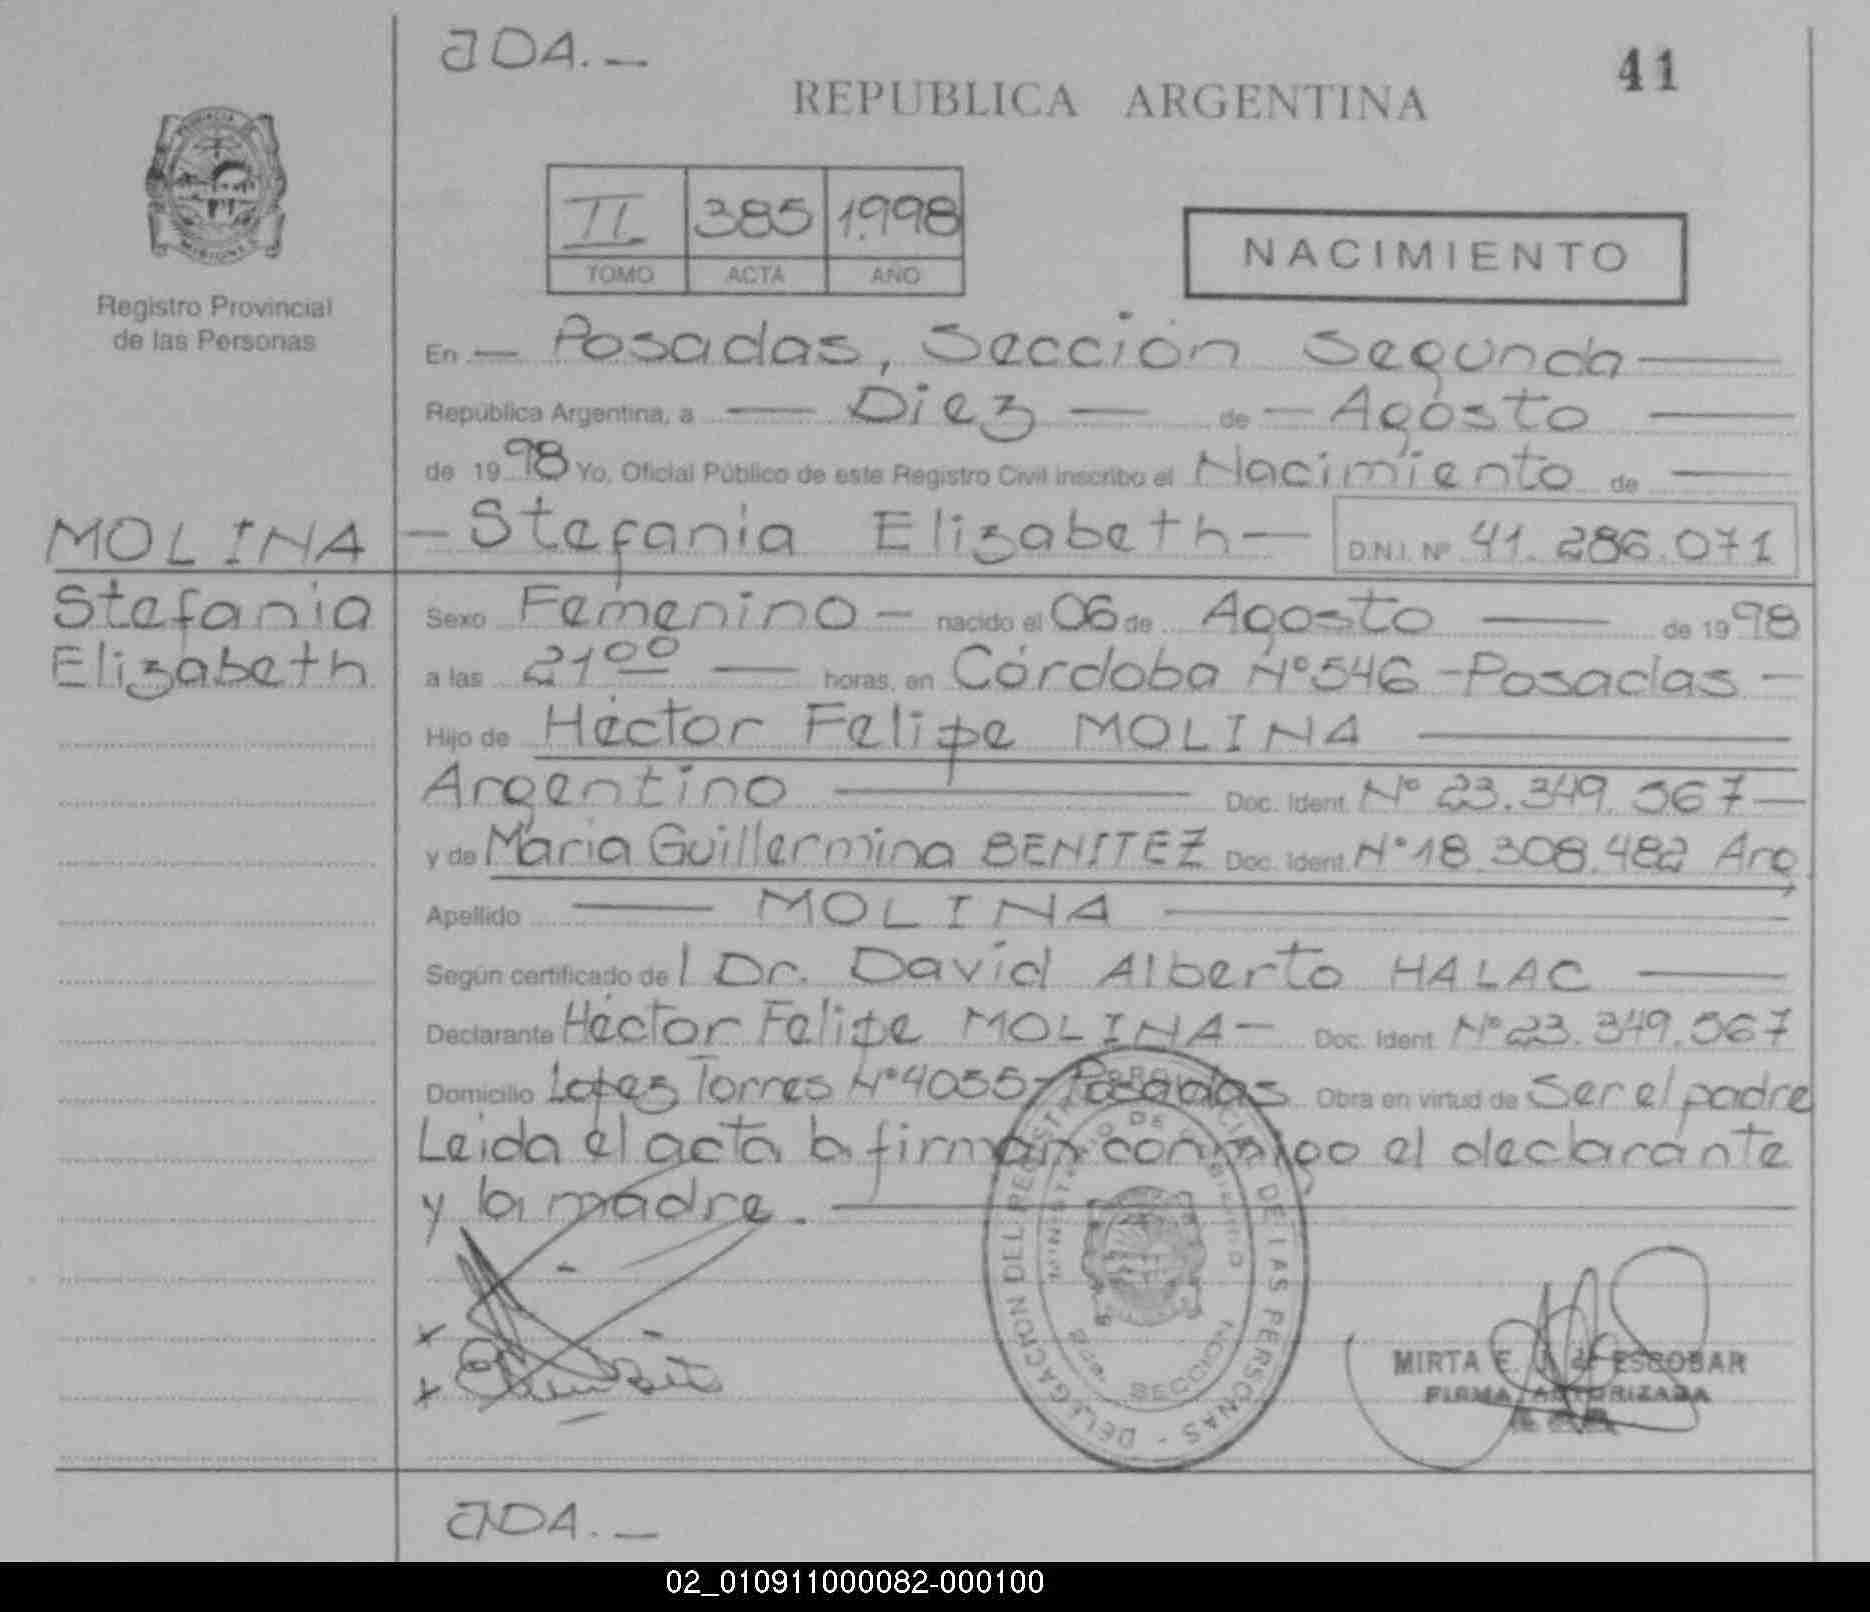 JDA.—
41
REPUBLICA ARGENTINA
II 385 1.998
TOMO ACTA AÑO
NACIMIENTO
Registro Provincial
de las Personas
En — Posadas, Sección Segunda —
República Argentina, a — Diez — de — Agosto —
de 1998 Yo, Oficial Público de este Registro Civil inscribo el Nacimiento de —
MOLINA
Stefania
Elizabeth
— Stefania Elizabeth — D.N.I. Nº 41.286.071
Sexo Femenino — nacido el 06 de Agosto — de 1998
a las 21⁰⁰ — horas, en Córdoba Nº 546 - Posadas —
Hijo de Héctor Felipe MOLINA —
Argentino — Doc. Ident. Nº 23.349.567 —
y de María Guillermina BENITEZ Doc. Ident. Nº 18.308.482 Arg.
Apellido — MOLINA —
Según certificado del Dr. David Alberto HALAC —
Declarante Héctor Felipe MOLINA — Doc. Ident. Nº 23.349.567
Domicilio Lopez Torres Nº 4055 - Posadas Obra en virtud de Ser el padre
Leida el acta la firman conmigo el declarante
y la madre. —
DELEGACION DEL REGISTRO PROVINCIAL DE LAS PERSONAS
MINISTERIO DE GOBIERNO
SECCION 2da.
MIRTA E. J. de ESCOBAR
FIRMA AUTORIZADA
JDA.—
02_010911000082-000100